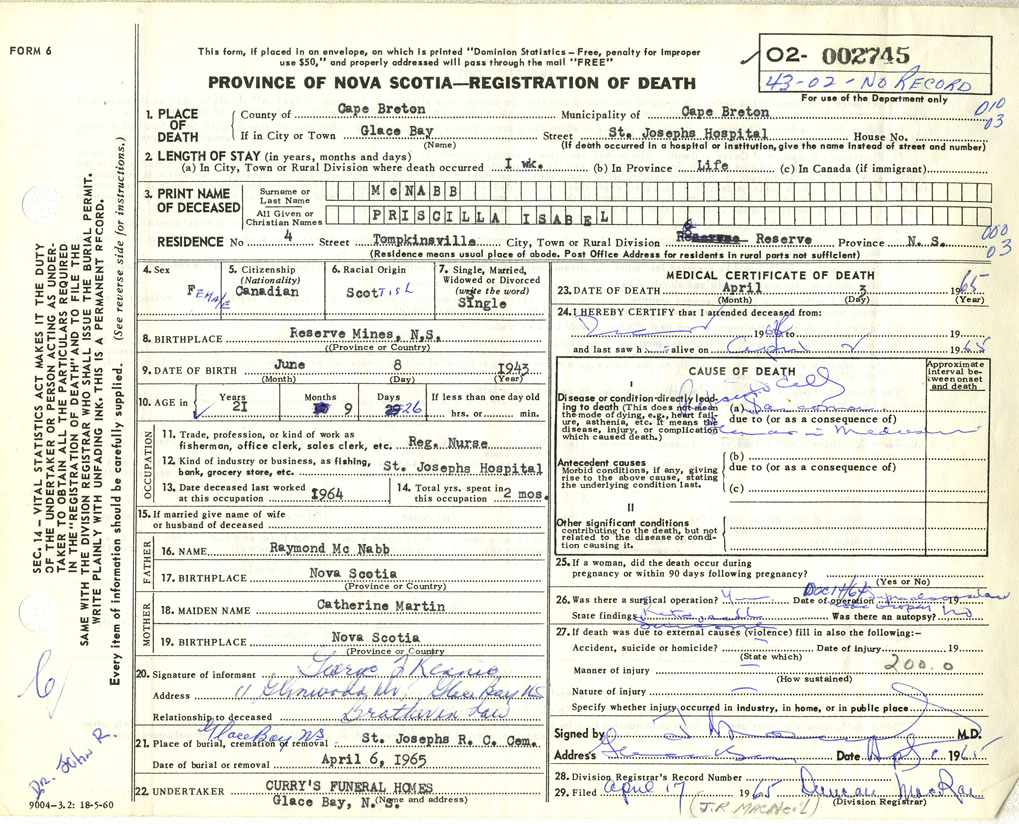 FORM 6
This form, if placed in an envelope, on which is printed "Dominion Statistics – Free, penalty for improper
use $50," and properly addressed will pass through the mail "FREE"
PROVINCE OF NOVA SCOTIA—REGISTRATION OF DEATH
02- 002745
43-02 - NO RECORD
For use of the Department only
010
03
1. PLACE OF DEATH
County of Cape Breton Municipality of Cape Breton
If in City or Town Glace Bay Street St. Josephs Hospital House No.
(Name) (If death occurred in a hospital or institution, give the name instead of street and number)
2. LENGTH OF STAY (in years, months and days)
(a) In City, Town or Rural Division where death occurred I wk. (b) In Province Life (c) In Canada (if immigrant)
3. PRINT NAME OF DECEASED
Surname or Last Name McNABB
All Given or Christian Names PRISCILLA ISABEL
RESIDENCE No 4 Street Tompkinsville City, Town or Rural Division Reserve Province N. S.
(Residence means usual place of abode. Post Office Address for residents in rural parts not sufficient)
000
03
4. Sex FEMALE
5. Citizenship (Nationality) Canadian
6. Racial Origin ScotTISH
7. Single, Married, Widowed or Divorced (write the word) Single
8. BIRTHPLACE Reserve Mines, N.S.
(Province or Country)
9. DATE OF BIRTH June 8 1943
(Month) (Day) (Year)
10. AGE in Years 21 Months 9 Days 26 If less than one day old hrs. or min.
OCCUPATION
11. Trade, profession, or kind of work as
fisherman, office clerk, sales clerk, etc. Reg. Nurse
12. Kind of industry or business, as fishing,
bank, grocery store, etc. St. Josephs Hospital
13. Date deceased last worked at this occupation 1964
14. Total yrs. spent in this occupation 2 mos.
15. If married give name of wife
or husband of deceased
FATHER
16. NAME Raymond Mc Nabb
17. BIRTHPLACE Nova Scotia
(Province or Country)
MOTHER
18. MAIDEN NAME Catherine Martin
19. BIRTHPLACE Nova Scotia
(Province or Country)
20. Signature of informant
Address 11 Glenwood Glace Bay NS
Relationship to deceased Brother in Law
Glace Bay NS
21. Place of burial, cremation or removal St. Josephs R. C. Cem.
Date of burial or removal April 6, 1965
22. UNDERTAKER CURRY'S FUNERAL HOMES
Glace Bay, N.S. (Name and address)
MEDICAL CERTIFICATE OF DEATH
23. DATE OF DEATH April 3 1965
(Month) (Day) (Year)
24. I HEREBY CERTIFY that I attended deceased from:
1964 to 19
and last saw h alive on 1965
CAUSE OF DEATH
Approximate interval between onset and death
I
Disease or condition directly leading to death (This does not mean
the mode of dying, e.g., heart failure, asthenia, etc. It means the
disease, injury, or complication which caused death.)
(a)
due to (or as a consequence of)
Antecedent causes
Morbid conditions, if any, giving
rise to the above cause, stating
the underlying condition last.
(b)
due to (or as a consequence of)
(c)
II
Other significant conditions
contributing to the death, but not
related to the disease or condition causing it.
25. If a woman, did the death occur during
pregnancy or within 90 days following pregnancy?
(Yes or No)
26. Was there a surgical operation? Date of operation 19
State findings Was there an autopsy? No
27. If death was due to external causes (violence) fill in also the following:–
Accident, suicide or homicide? Date of injury 19
(State which)
200.0
Manner of injury
(How sustained)
Nature of injury
Specify whether injury occurred in industry, in home, or in public place
Signed by M.D.
Address Glace Bay Date 1965
28. Division Registrar's Record Number
29. Filed April 17 1965 Duncan MacRae
(J.R. MACNEIL) (Division Registrar)
SEC. 14 – VITAL STATISTICS ACT MAKES IT THE DUTY
OF THE UNDERTAKER OR PERSON ACTING AS UNDERTAKER TO OBTAIN ALL THE PARTICULARS REQUIRED
IN THE "REGISTRATION OF DEATH" AND TO FILE THE
SAME WITH THE DIVISION REGISTRAR WHO SHALL ISSUE THE BURIAL PERMIT.
WRITE PLAINLY WITH UNFADING INK. THIS IS A PERMANENT RECORD.
Every item of information should be carefully supplied. (See reverse side for instructions.)
6
Dr. John R.
9004–3.2: 18-5-60